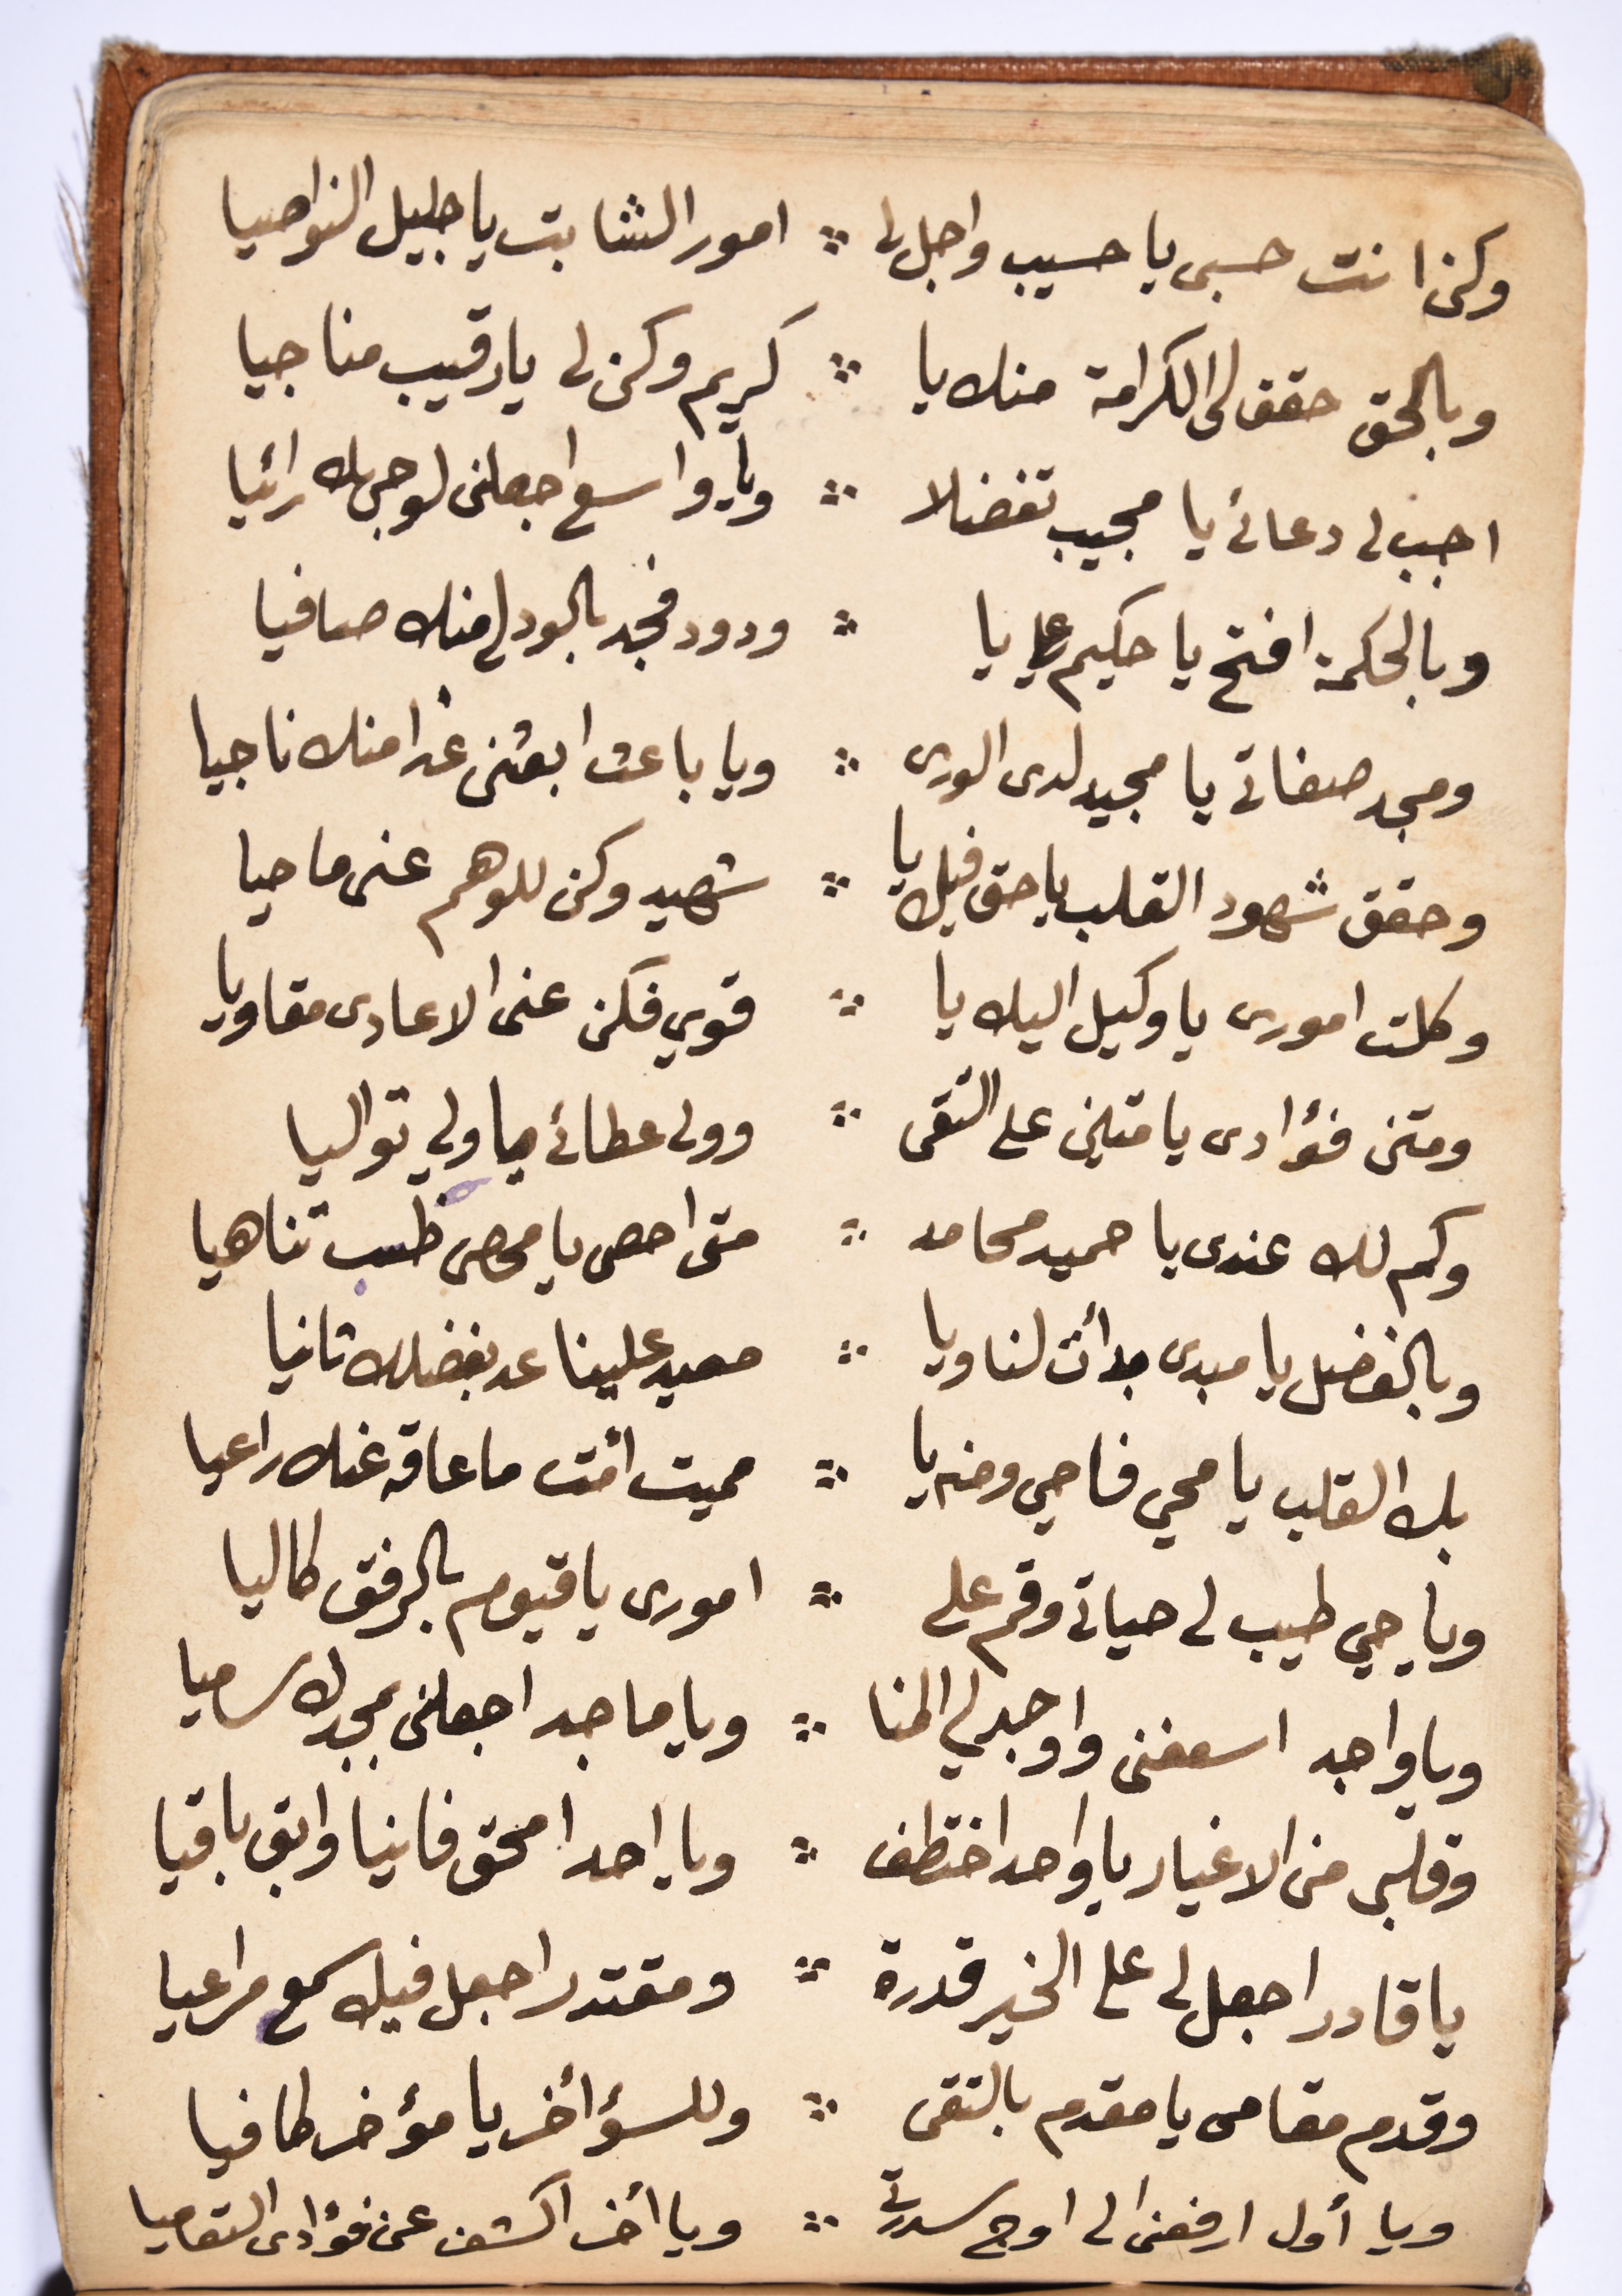 وكن انت حسبى يا حسيب واجل لى ∴ امور الشابت يا جليل النواصيا
وبالحق حقق لى الكرامة منك يا ∴ كريم وكن لى يا رقيب مناجيا
اجب لى دعائى يا مجيب تفضلا ∴ ويا واسع اجعلنى لوجهك رائيا
وبالحكمة افتح يا حكيم على يا ∴ ودود فجد بالود لى منك صافيا
ومجد صفاتى يا مجيد لدى الورى ∴ ويا باعث ابعثنى غدا منك ناجيا
وحقق شهود القلب يا حق فيك يا ∴ شهيد وكن للوهم عنى ماحيا
وكلت امورى يا وكيل اليك يا ∴ قوي فكن عنى الاعادى مقاويا
ومتن فؤادى يا متين على التقى ∴ وولى عطائى يا ولي تواليا
وكم لك عندى يا حميد محامد ∴ متى احصى يا محصى تناهيا
وبالفضل يا مبدى بدأت لنا ويا ∴ معيد علينا عد بفضلك ثانيا
بك القلب يا محي فاحي ومنه يا ∴ مميت أمت ما عاقه عنك راعيا
ويا حي طيب لى حياتى وقم على ∴ امورى يا قيوم بالرفق كاليا
ويا واجد اسعفنى واوجد لي المنا ∴ ويا ماجد اجعلنى بمجدك ساميا
وقلبى من الاغيار يا واحد اختطف ∴ ويا احد امحق فانيا وابق باقيا
يا قادر اجعل لى على الخير قدرة ∴ ومقتدر اجعل فيك سمع مراعيا
وقدم مقامى يا مقدم بالتقى ∴ وللسؤ أخر يا مؤخر كافيا
ويا أول ارفعنى الى اوج سدرتى ∴ ويا أخر اكشف عن فؤادى التعاميا